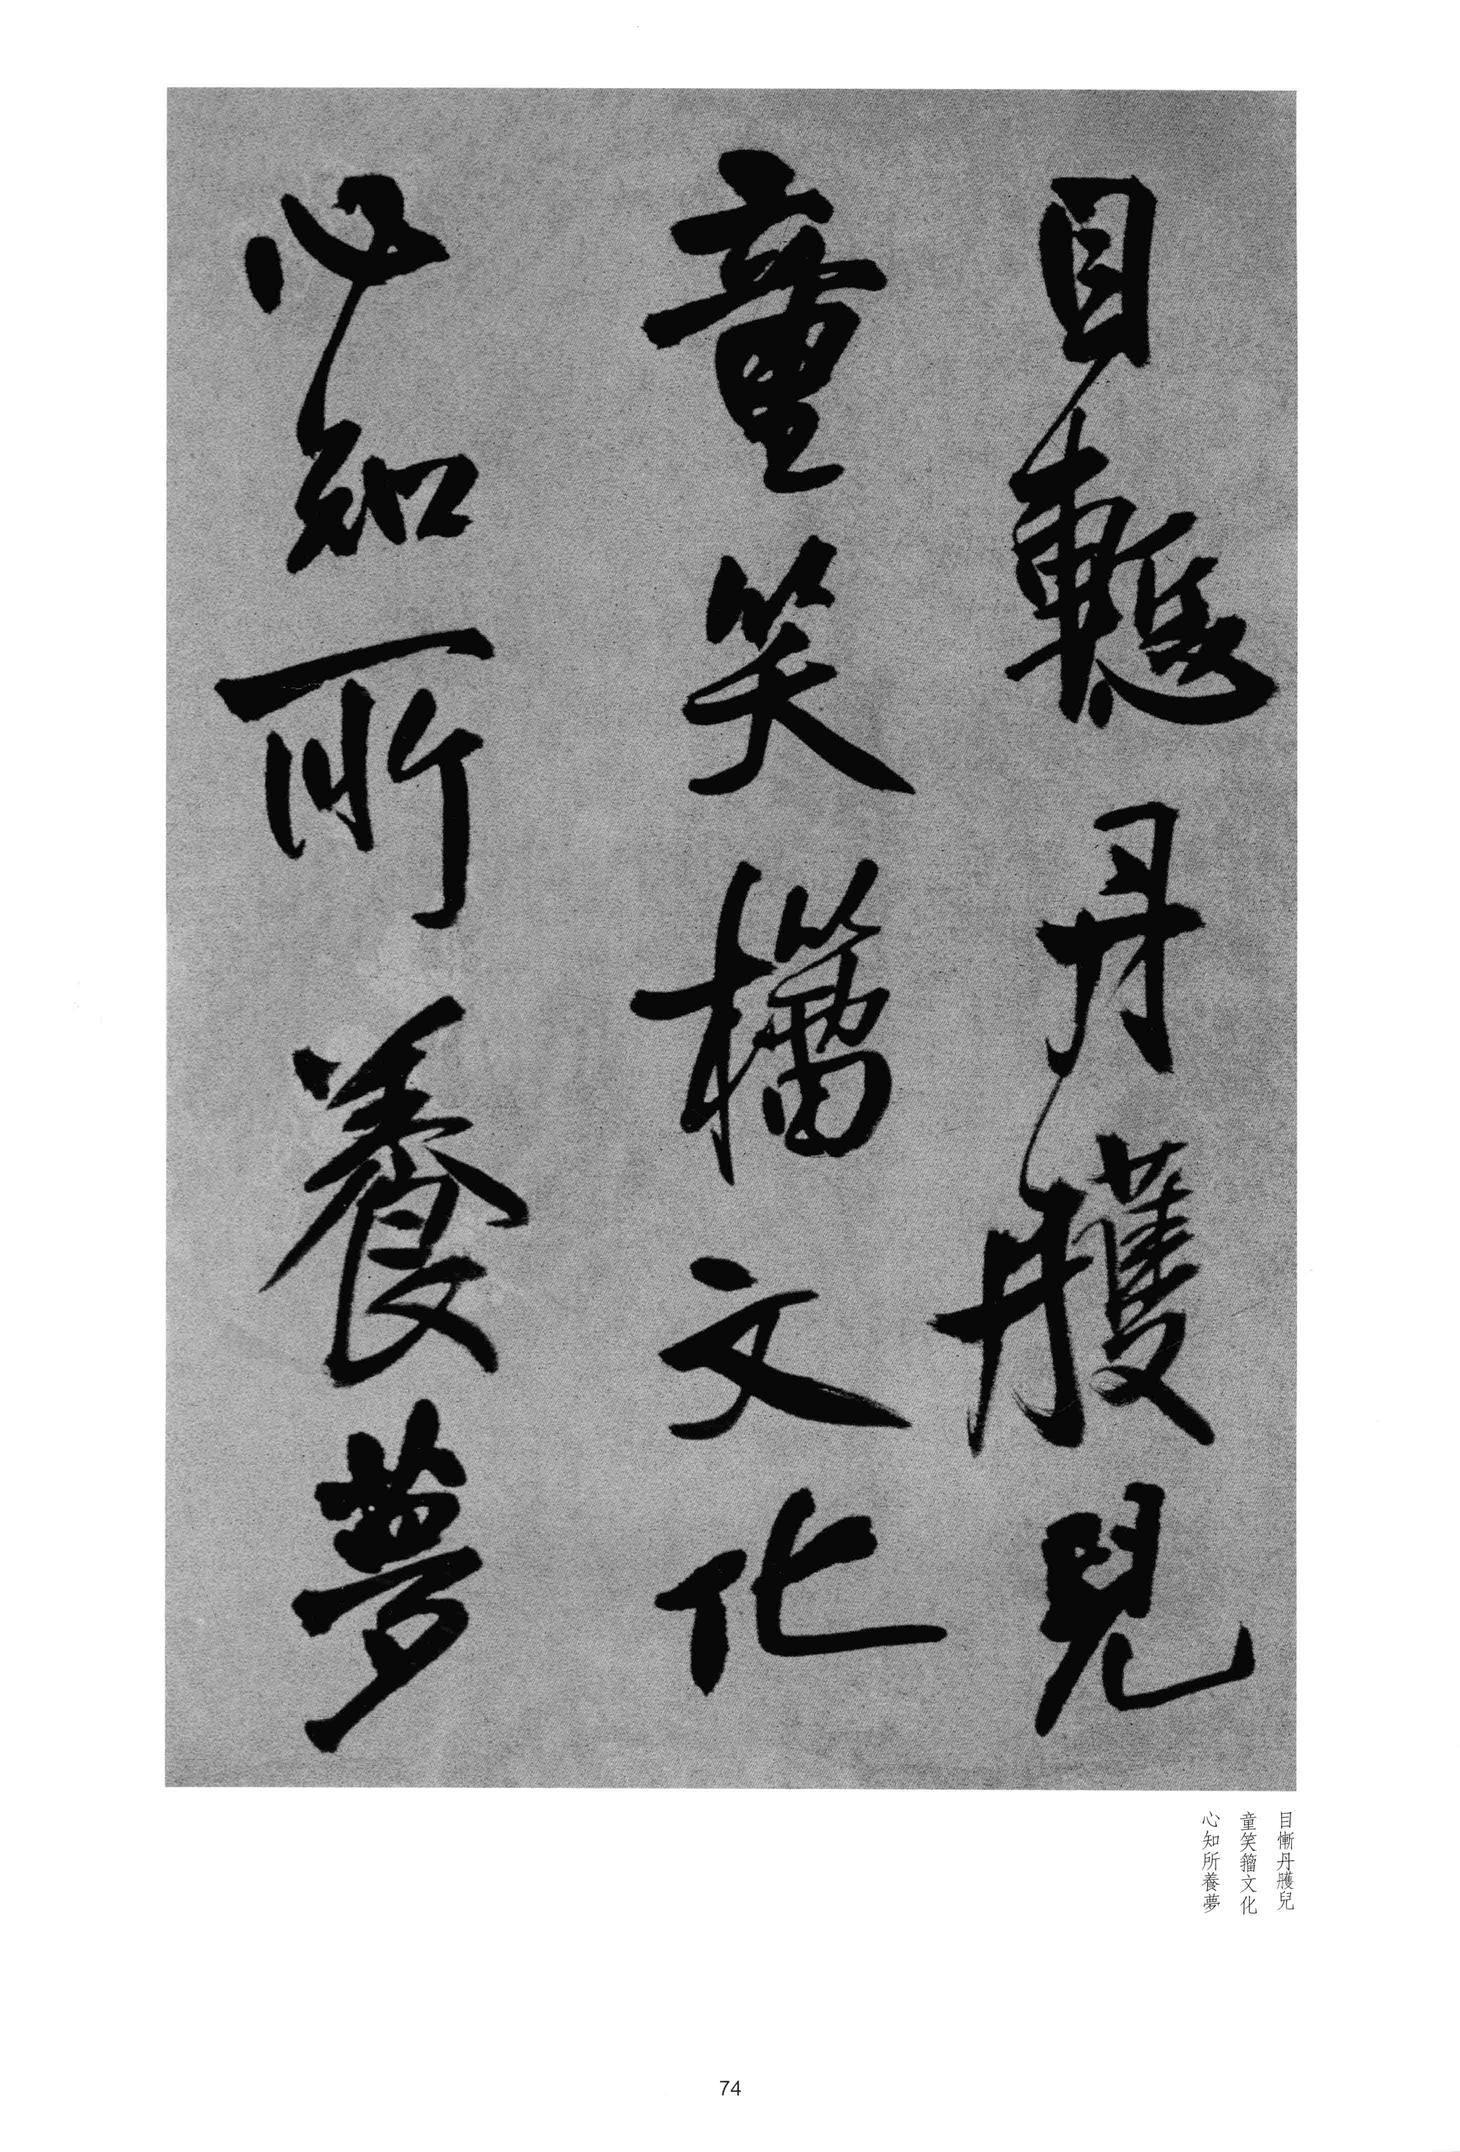 目慙丹雘兒
童笑籀文化
心知所養夢
目慚丹雘兒
童笑籀文化
心知所養夢
74